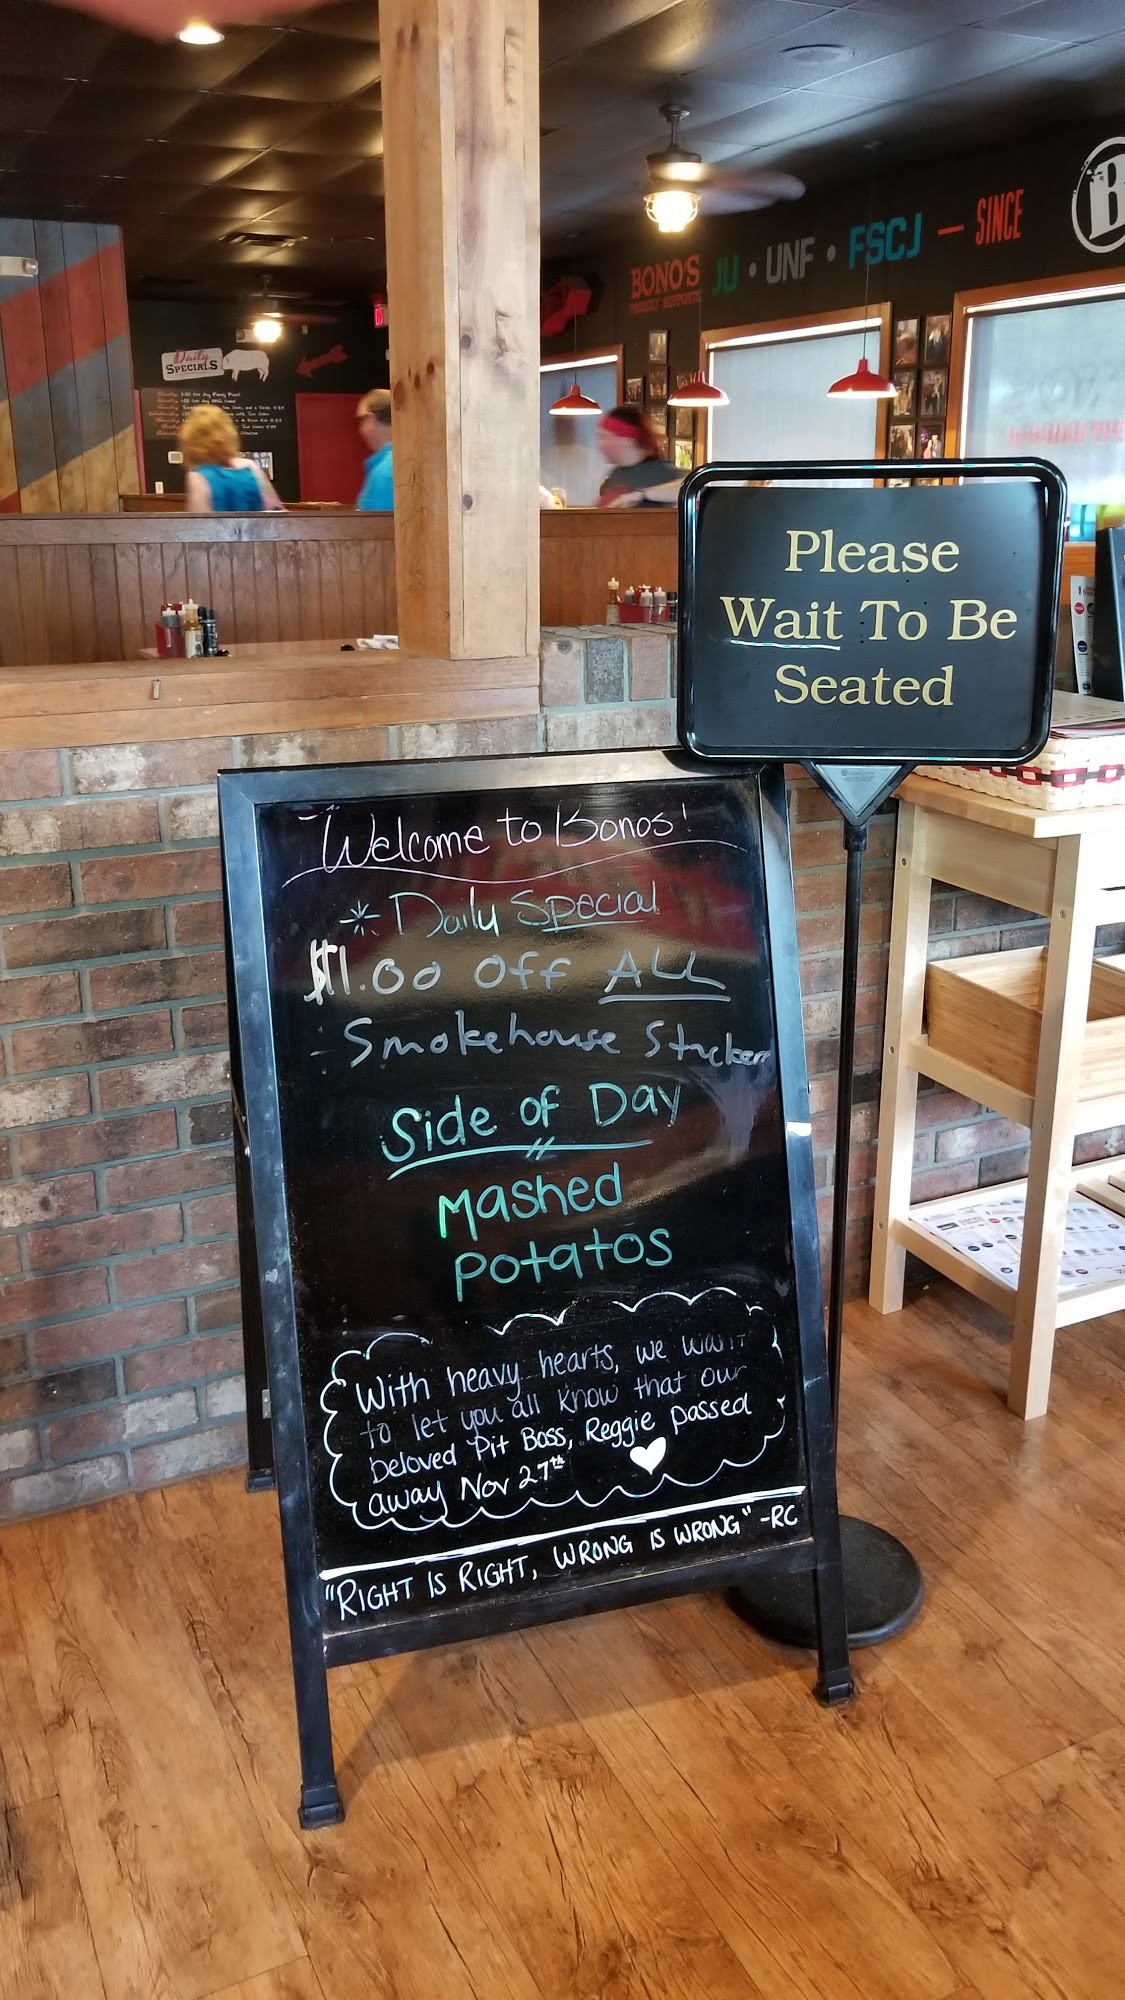 BONO'S JU • UNF • FSCJ — SINCE
PROUDLY SUPPORTS
Daily
SPECIALS
Please
Wait To Be
Seated
"Welcome to Bonos!
Daily Special
$1.00 Off ALL
Smokehouse Stackers
Side of Day
Mashed
potatos
With heavy hearts, we want
to let you all know that our
beloved Pit Boss, Reggie passed
away Nov 27th
"RIGHT IS RIGHT, WRONG IS WRONG" -RC